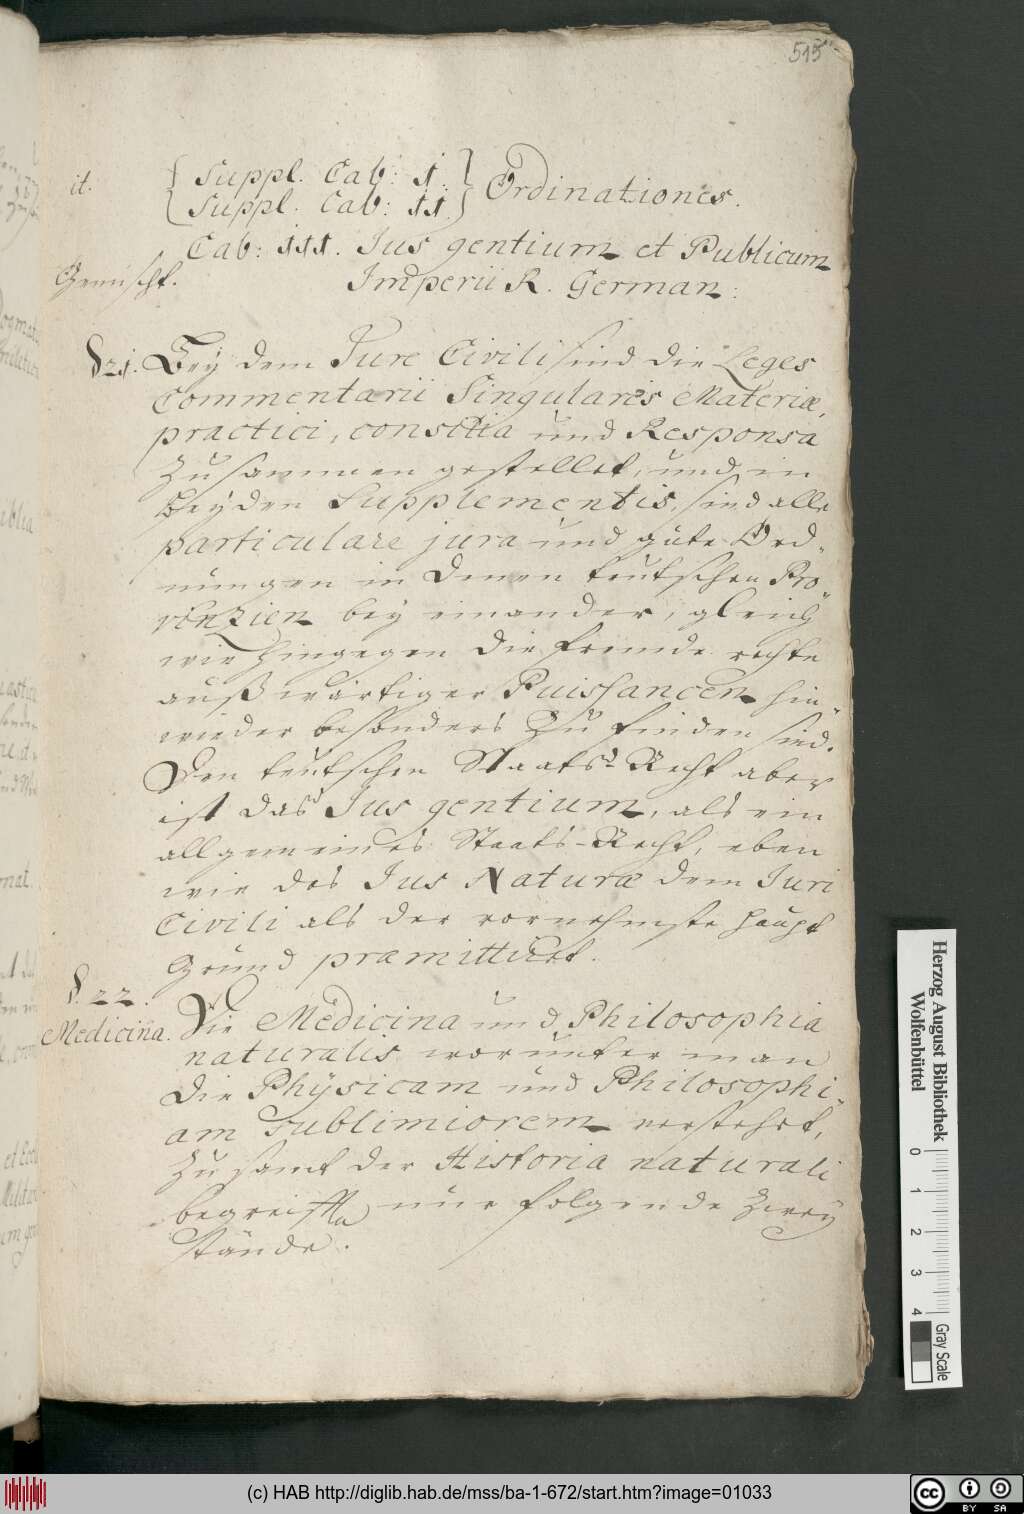 515
it. { Suppl. Cab: I. } Ordinationes.
{ Suppl. Cab: II. }
Cab: III. Jus gentium et Publicum
Gemischt. Imperii R. German:
§ 21. Bey dem Jure Civili sind die Leges
Commentarii Singularis Materiæ,
practici, consilia und Responsa
zusammen gestellet, und in
beyden Supplementis, sind alle
particulare jura und gute Ord„
nungen in denen teutschen Pro„
vinzien bey einander, gleich
wie hingegen die fremde rechte
außwärtiger Puissancen hin„
wieder besonders zu finden sind.
Den teutschen Staats-Recht aber
ist das Jus gentium, als ein
allgemeines Staats-Recht, eben
wie das Jus Naturæ dem Juri
Civili als der vornehmste Haupt
Grund præmittiret.
§. 22.
Medicina. Die Medicina und Philosophia
naturalis worunter man
die Physicam und Philosophi„
am Sublimiorem verstehet,
zu samt der Historia naturali
begreiffen nur folgende zwey
stände.
Herzog August Bibliothek
Wolfenbüttel
0 1 2 3 4
Gray Scale
(c) HAB http://diglib.hab.de/mss/ba-1-672/start.htm?image=01033
cc BY SA